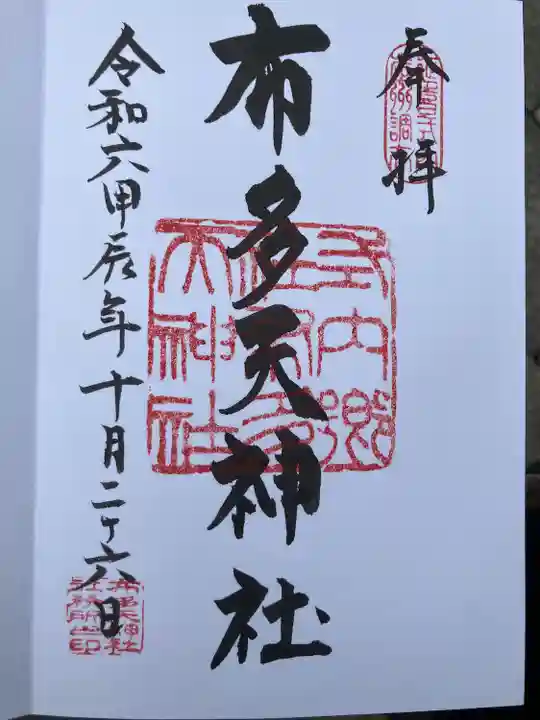 奉拝
布多天神社
令和六甲辰年十月二十六日
式内郷社布多天神社
布多天神社社務所之印